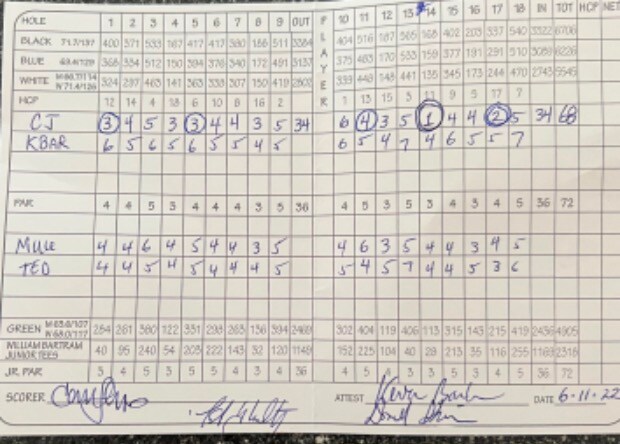 HOLE 1 2 3 4 5 6 7 8 9 OUT PLAYER 10 11 12 13 14 15 16 17 18 IN TOT HCP NET
BLACK 71.7/137 400 371 533 167 417 417 380 186 511 3384 404 516 187 505 168 402 203 337 540 3322 6706
BLUE 368 334 512 150 394 376 340 172 491 3137 375 483 170 533 159 377 191 291 510 3089 6226
WHITE 324 297 463 141 363 333 307 150 419 2802 333 449 148 441 135 345 173 244 470 2743 5545
HCP 12 14 4 18 6 10 8 16 2 1 13 15 3 11 9 5 17 7
CJ 3 4 5 3 3 4 4 3 5 34 6 4 3 5 1 4 4 2 5 34 68
KBAR 6 5 6 5 6 5 5 4 5 6 5 4 7 4 6 5 5 7
PAR 4 4 5 3 4 4 4 3 5 36 4 5 3 5 3 4 3 4 5 36 72
4 4 6 4 5 4 4 3 5 4 6 3 5 4 4 3 4 5
TED 4 4 5 4 5 4 4 4 5 5 4 5 7 4 4 5 3 6
GREEN 284 261 380 122 331 298 263 136 394 2469 302 404 119 406 113 315 143 215 419 2436 4905
WILLIAM BARTRAM JUNIOR TEES 40 95 240 54 203 222 143 32 120 1149 152 225 104 40 28 213 35 116 255 1169 2318
JR. PAR 4 4 5 3 5 5 4 3 4 36 4 5 3 3 5 3 4 5 36 72
SCORER ATTEST DATE 6-11-22